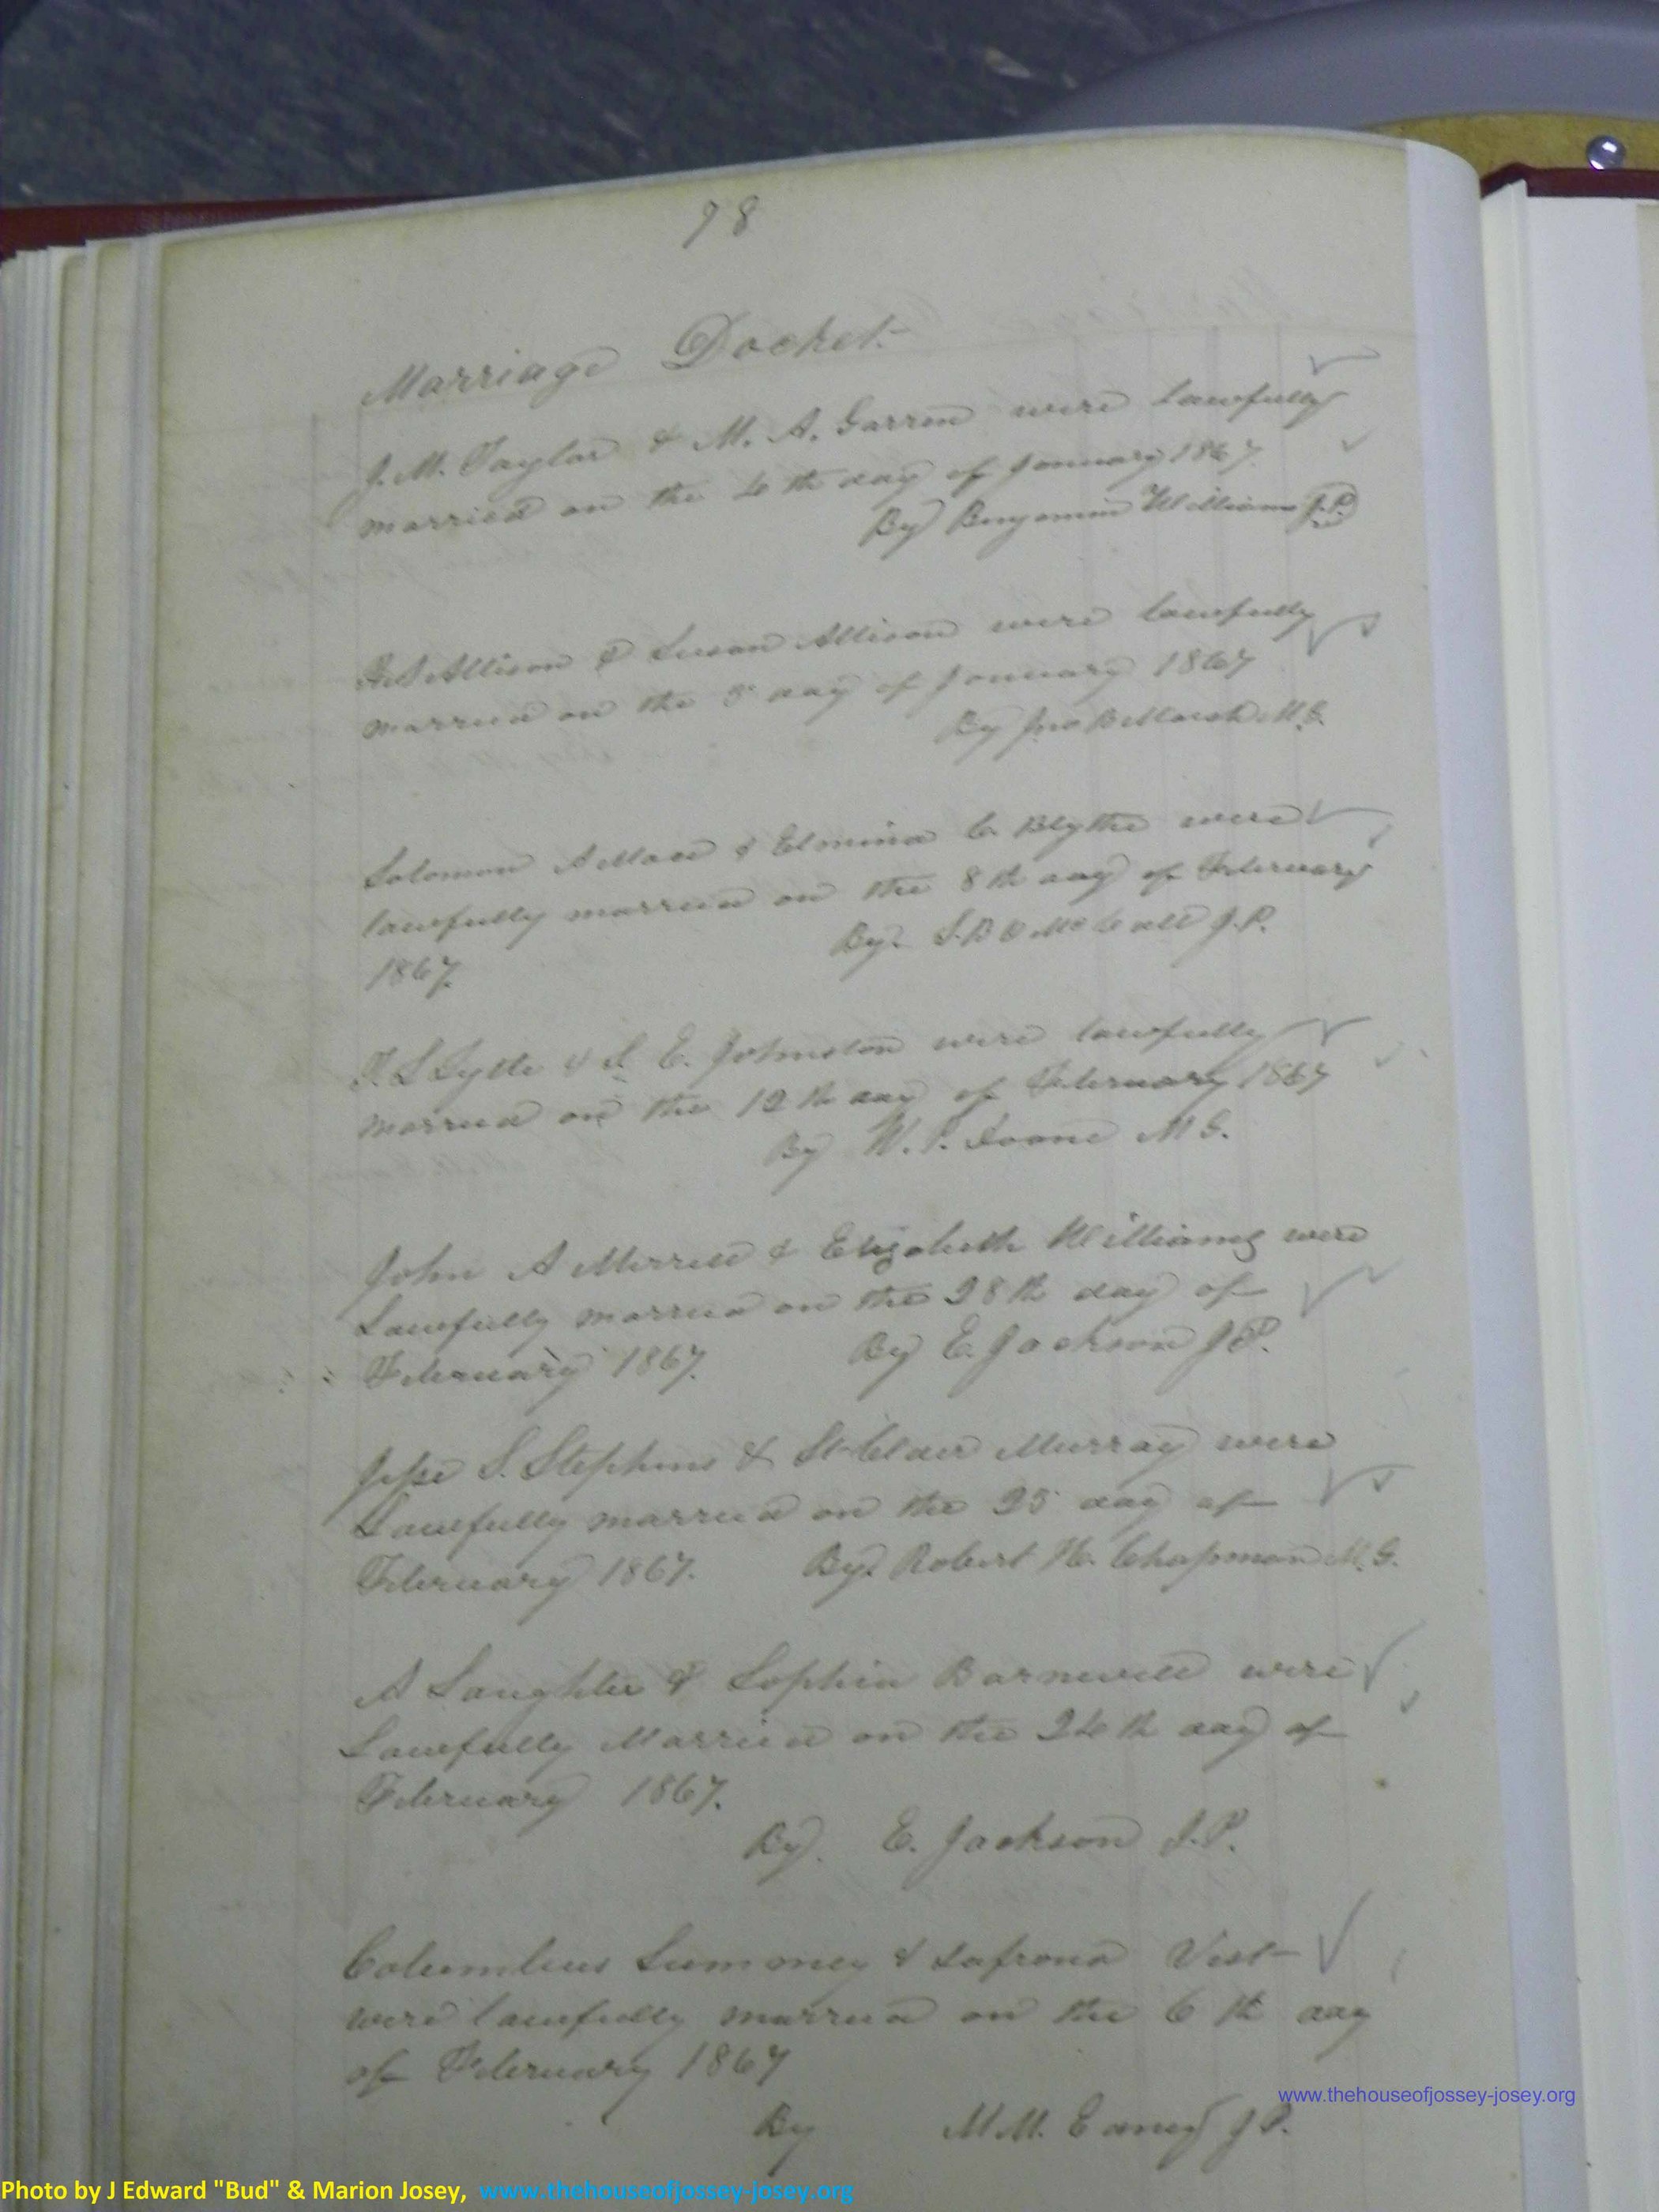 98
Marriage Docket
J. M. Taylor & M. A. Garren were Lawfully
married on the 4th day of January 1867.
By Benjamin Williams J.P.
Allison & Susan Allison were lawfully
married on the 8 day of January 1867
By Jno B Marsh M.G.
Solomon A Mace & Elmina C. Blythe were
lawfully married on the 8th day of February
By. McCall J.P.
1867.
T. L Lytle & S. E. Johnston were lawfully
married on the 12th day of February 1867
By W. P. M G.
John A Merrell & Elizabeth Williams were
Lawfully married on the 28th day of
February 1867. By E. Jackson J P.
Jesse S. Stephens & St Clair Murray were
Lawfully married on the 25 day of
February 1867. By. Robert H. Chapman M.G.
A Laughter & Sophia Barnwell were
Lawfully Married on the 24th day of
February 1867.
By. E. Jackson J.P.
Columbus Summey & Safrona Vest
were lawfully married on the 6th day
of February 1867
By M M. J P.
www.thehouseofjossey-josey.org
Photo by J Edward "Bud" & Marion Josey, www.thehouseofjossey-josey.org